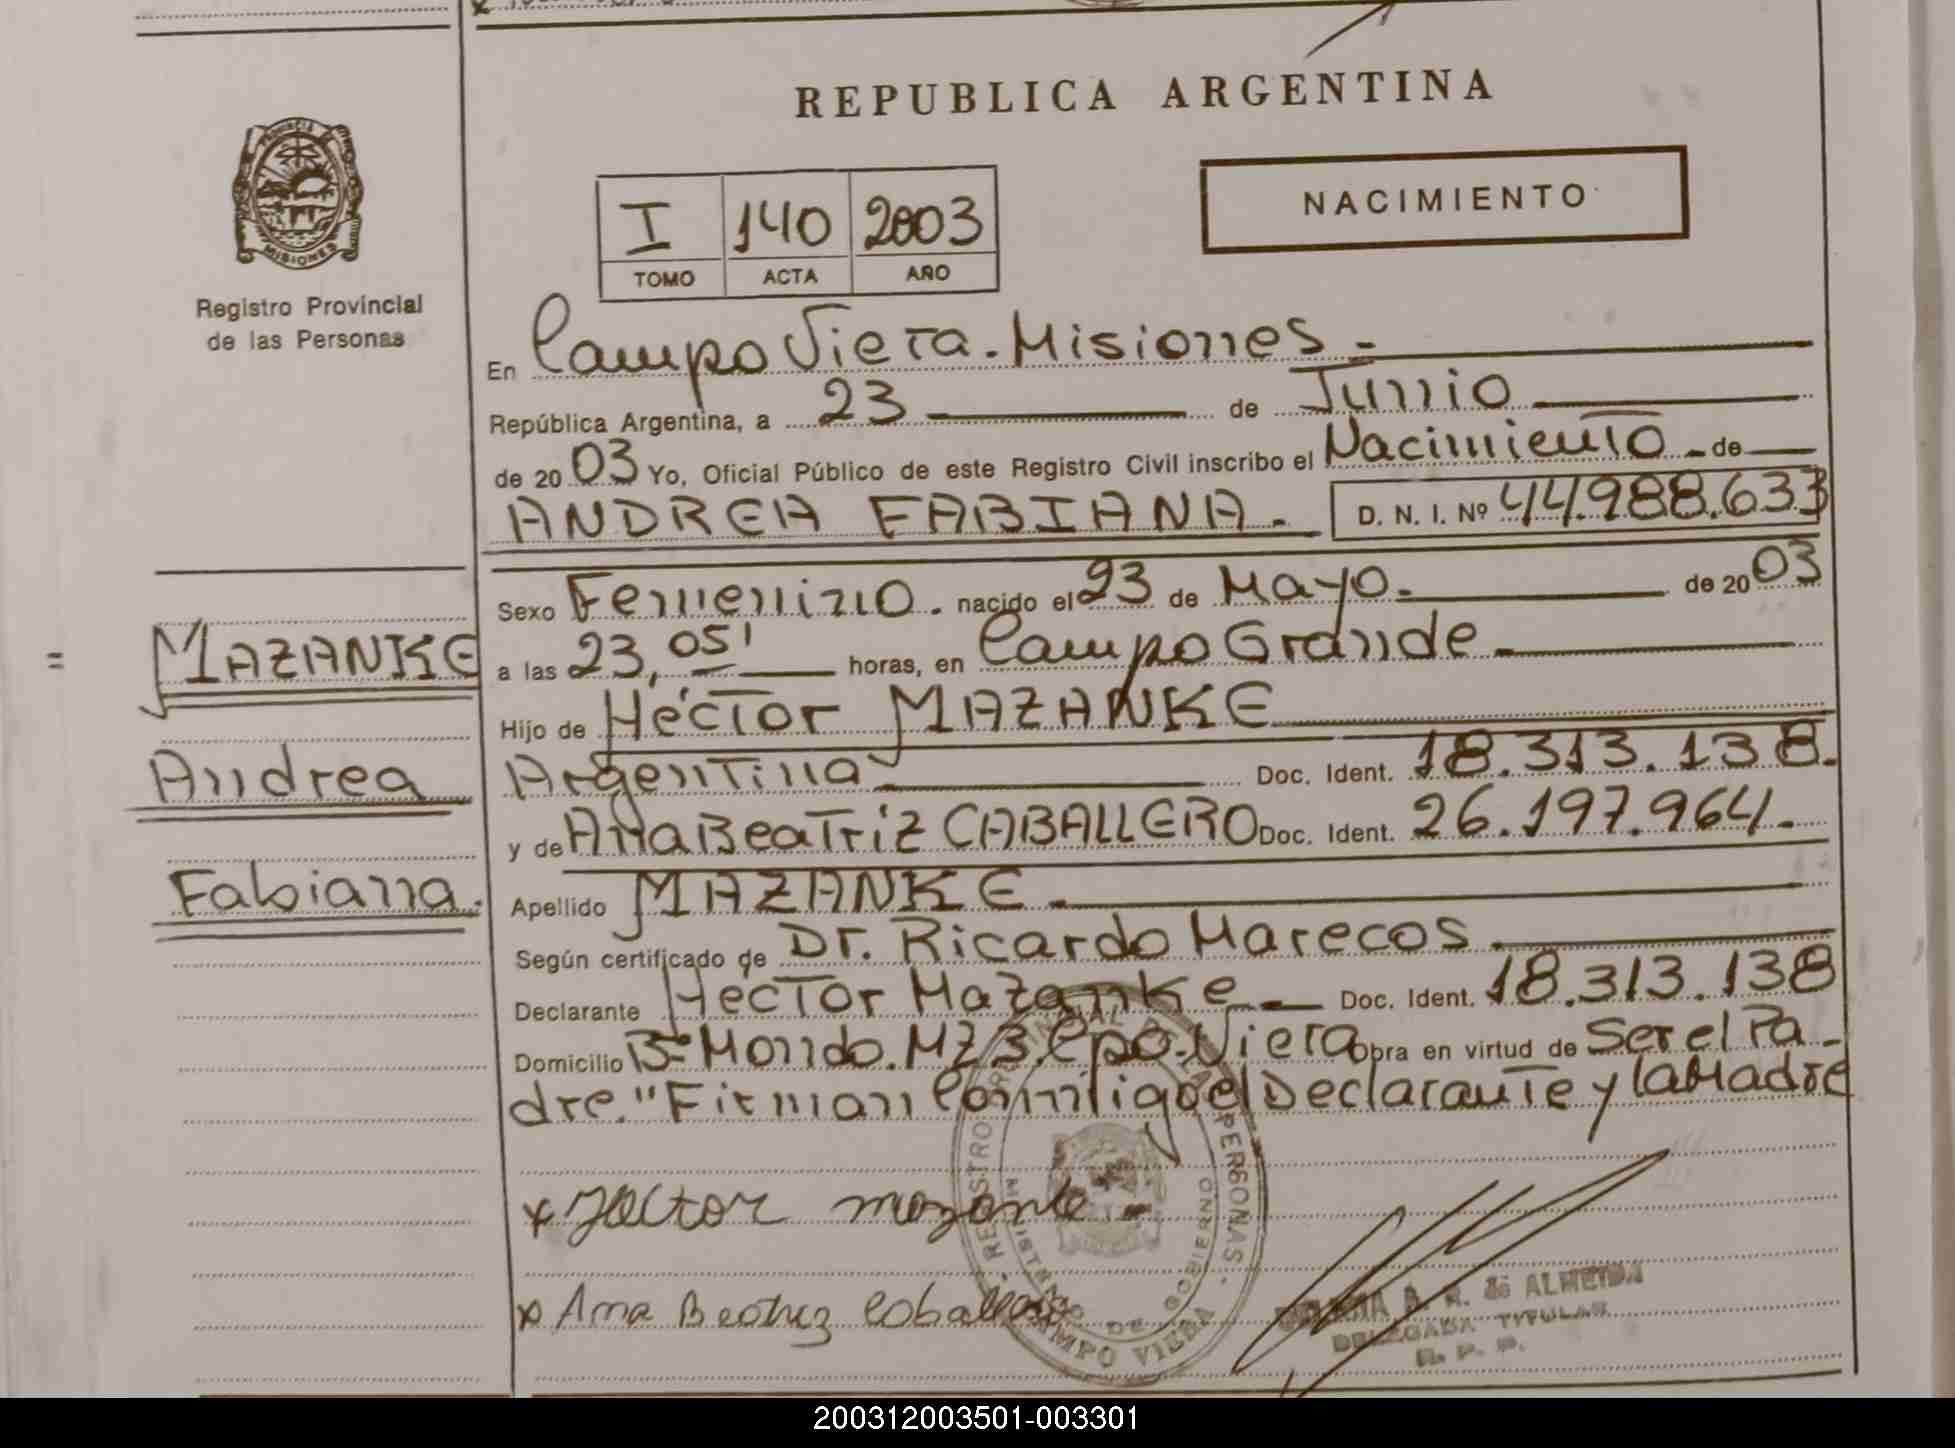 REPUBLICA ARGENTINA
PROVINCIA DE
MISIONES
Registro Provincial
de las Personas
I 140 2003
TOMO ACTA AÑO
NACIMIENTO
En Campo Viera. Misiones.
República Argentina, a 23 de Junio
de 2003 Yo, Oficial Público de este Registro Civil inscribo el Nacimiento de
ANDREA FABIANA. D. N. I. Nº 44.988.633
Sexo Femenino. nacido el 23 de Mayo. de 2003
a las 23,05' horas, en Campo Grande
Hijo de Héctor MAZANKE
Argentina Doc. Ident. 18.313.138.
y de Ana Beatriz CABALLERO Doc. Ident. 26.197.964.
Apellido MAZANKE.
Según certificado de Dr. Ricardo Marecos.
Declarante Hector Mazanke Doc. Ident. 18.313.138
Domicilio Bº Mondo. MZ 3. Cpo. Viera obra en virtud de Ser el Pa-
dre. "Firman Conmigo el Declarante y la Madre
= MAZANKE
Andrea
Fabiana.
x Hector mazanke
x Ana Beatriz Caballero
REGISTRO PROVINCIAL DE LAS PERSONAS
MINISTERIO DE GOBIERNO
CAMPO VIERA
A. R. de ALMEIDA
DELEGADA TITULAR
R. P. P.
200312003501-003301